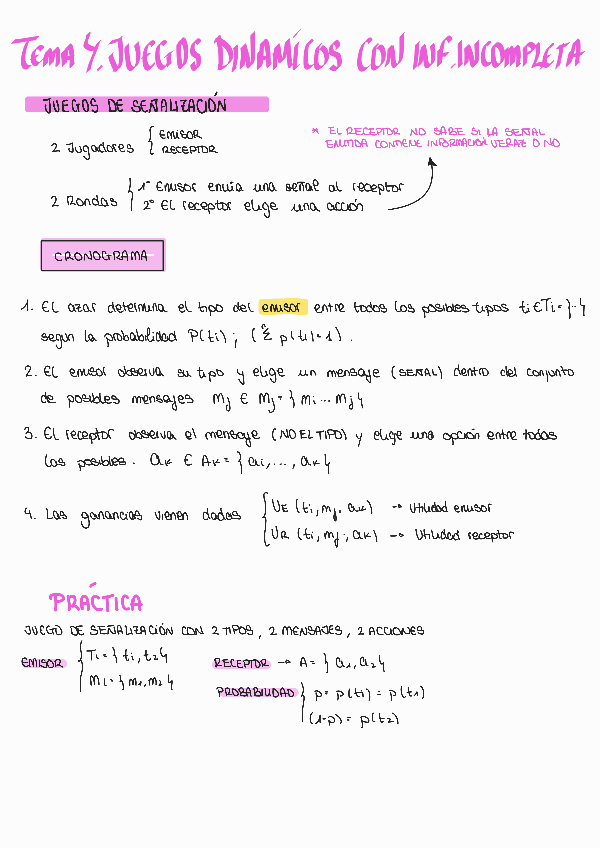 TEMA 4. JUEGOS DINAMÍCOS CON INF. INCOMPLETA
JUEGOS DE SEÑALIZACIÓN
2 Jugadores { EMISOR
RECEPTOR
* EL RECEPTOR NO SABE SI LA SEÑAL
EMITIDA CONTIENE INFORMACIÓN VERAZ O NO
2 Rondas { 1º Emisor envía una señal al receptor
2º El receptor elige una acción
CRONOGRAMA
1. El azar determina el tipo del emisor entre todos los posibles tipos ti ∈ Ti = }··{
según la probabilidad P(ti) ; ( Σ p(ti)=1 ) .
2. El emisor observa su tipo y elige un mensaje (SEÑAL) dentro del conjunto
de posibles mensajes mj ∈ Mj = } mi... mj {
3. El receptor observa el mensaje (NO EL TIPO) y elige una opción entre todas
las posibles. ak ∈ Ak = } ai, ..., ak {
4. Las ganancias vienen dadas { UE (ti, mj, ak) → Utilidad emisor
UR (ti, mj, ak) → Utilidad receptor
PRÁCTICA
JUEGO DE SEÑALIZACIÓN CON 2 TIPOS, 2 MENSAJES, 2 ACCIONES
EMISOR { Ti = } ti, t2 {
Mi = } m1, m2 {
RECEPTOR → A = } a1, a2 {
PROBABILIDAD { p = p(ti) = p(t1)
(1-p) = p(t2)